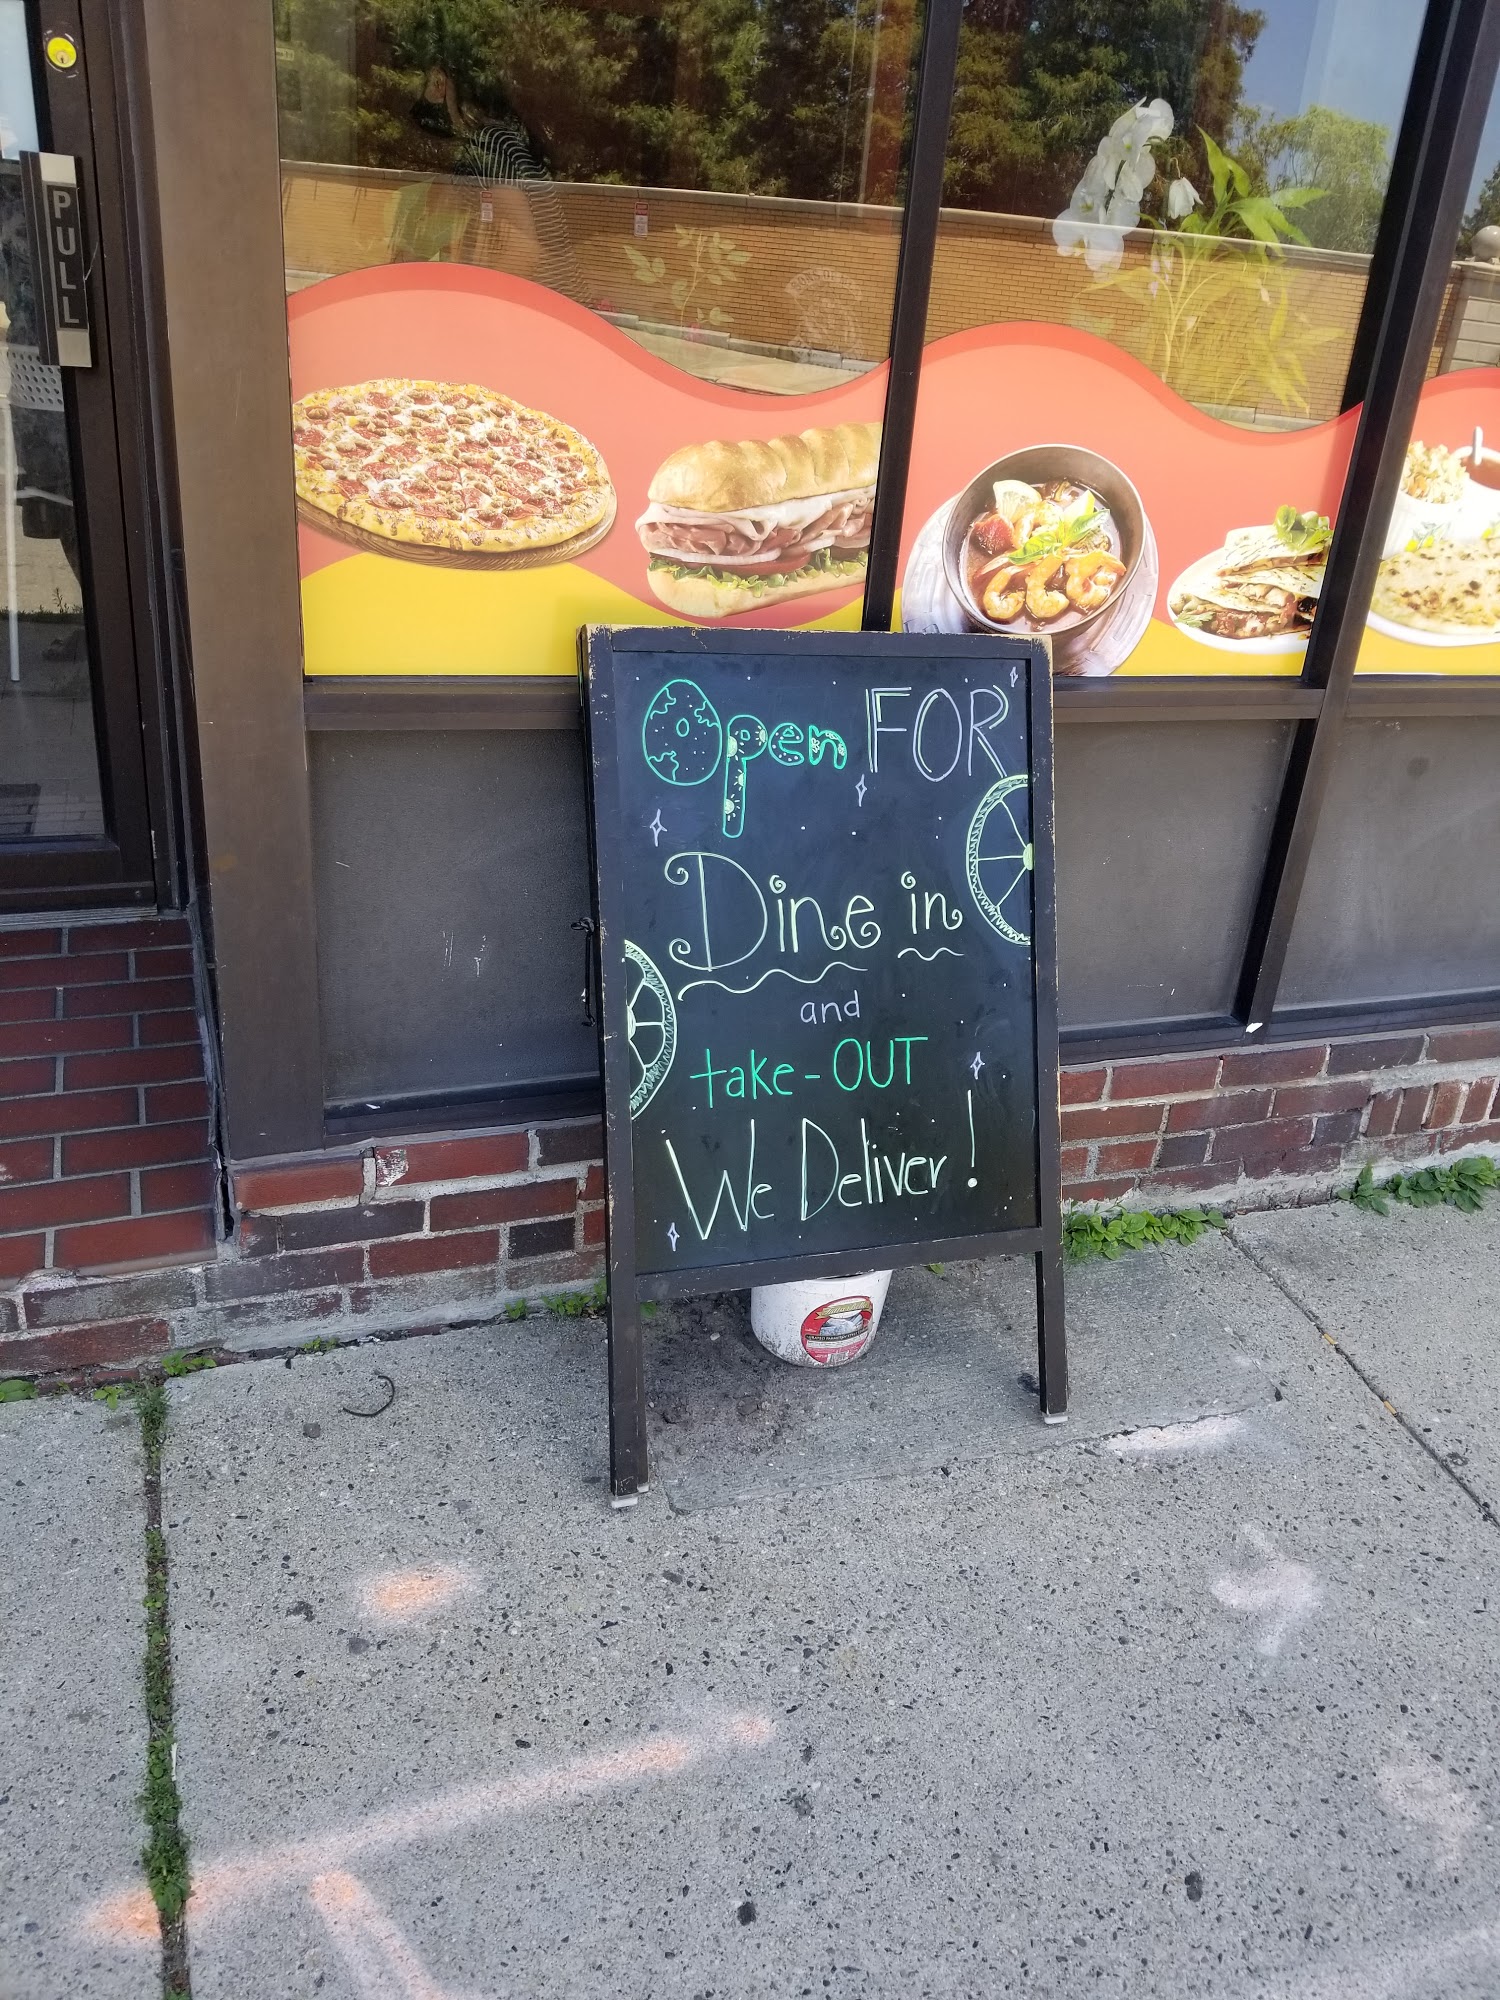 PULL
Open FOR
Dine in
and
take-OUT
We Deliver!